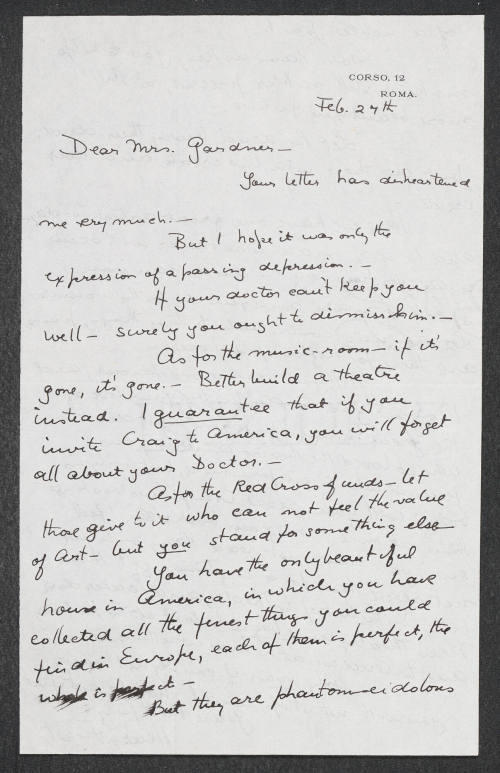 CORSO, 12
ROMA.
Feb. 27th
Dear Mrs. Gardner —
Your letter has disheartened
me very much. —
But I hope it was only the
expression of a passing depression. —
If your doctor can't keep you
well — surely you ought to dismiss him. —
As for the music-room — if it's
gone, it's gone. — Better build a theatre
instead. I guarantee that if you
invite Craig to America, you will forget
all about your Doctor. —
As for the Red Cross funds — let
those give to it who can not feel the value
of Art — but you stand for something else —
You have the only beautiful
house in America, in which you have
collected all the finest things you could
find in Europe, each of them is perfect, the
whole is perfect —
But they are phantom-eidolons